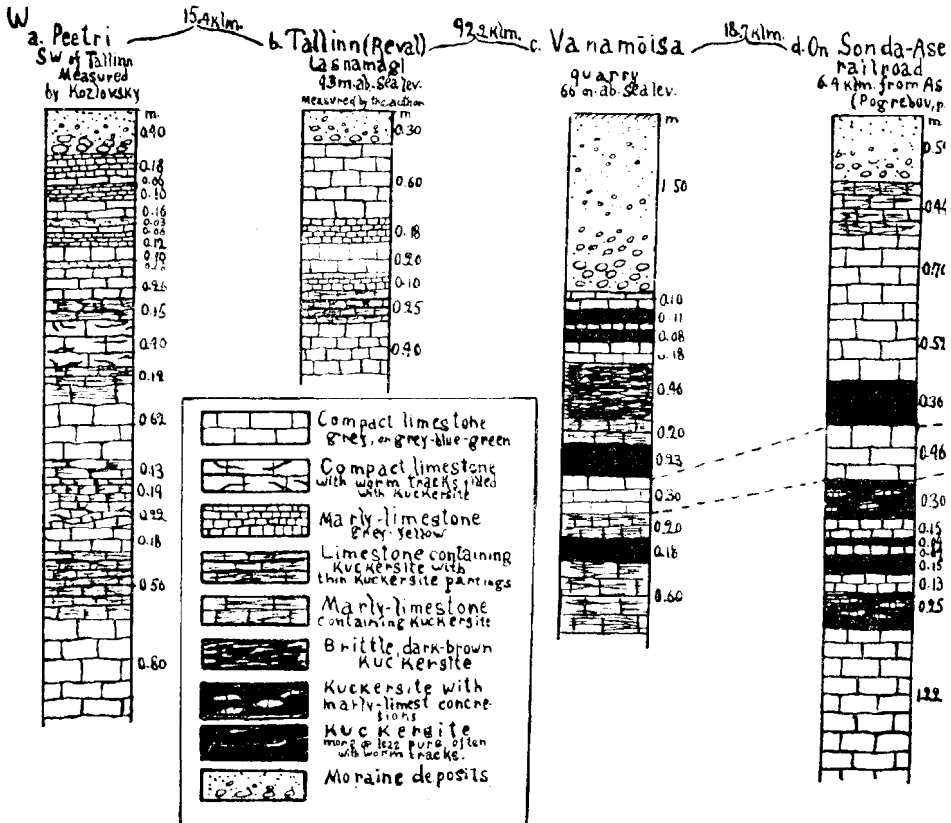 W
15.4 klm.
92.2 klm.
18.7 klm.
a. Peetri
SW of Tallinn
Measured
by Kozlovsky
b. Tallinn (Reval)
Lasnamägi
43 m. ab. sea lev.
Measured by the author
c. Vanamõisa
quarry
66 m. ab. sea lev.
d. On Sonda-Ase
railroad
6.4 klm. from As
(Pogrebov, p.
m.
0.40
0.18
0.06
0.10
0.16
0.03
0.06
0.12
0.10
0.26
0.15
0.20
0.12
0.62
0.13
0.14
0.22
0.18
0.56
0.80
m
0.30
0.60
0.18
0.20
0.10
0.25
0.40
m
1.50
0.10
0.11
0.08
0.18
0.46
0.20
0.23
0.30
0.20
0.18
0.60
m
0.5
0.4
0.70
0.52
0.36
0.46
0.30
0.15
0.15
0.13
0.25
1.22
Compact limestone
grey, or grey-blue-green
Compact limestone
with worm tracks filled
with Kuckersite
Marly-limestone
grey-yellow
Limestone containing
Kuckersite with
thin Kuckersite partings
Marly-limestone
containing Kuckersite
Brittle, dark-brown
Kuckersite
Kuckersite with
marly-limest concre-
sions
Kuckersite
more or less pure, often
with worm tracks.
Moraine deposits